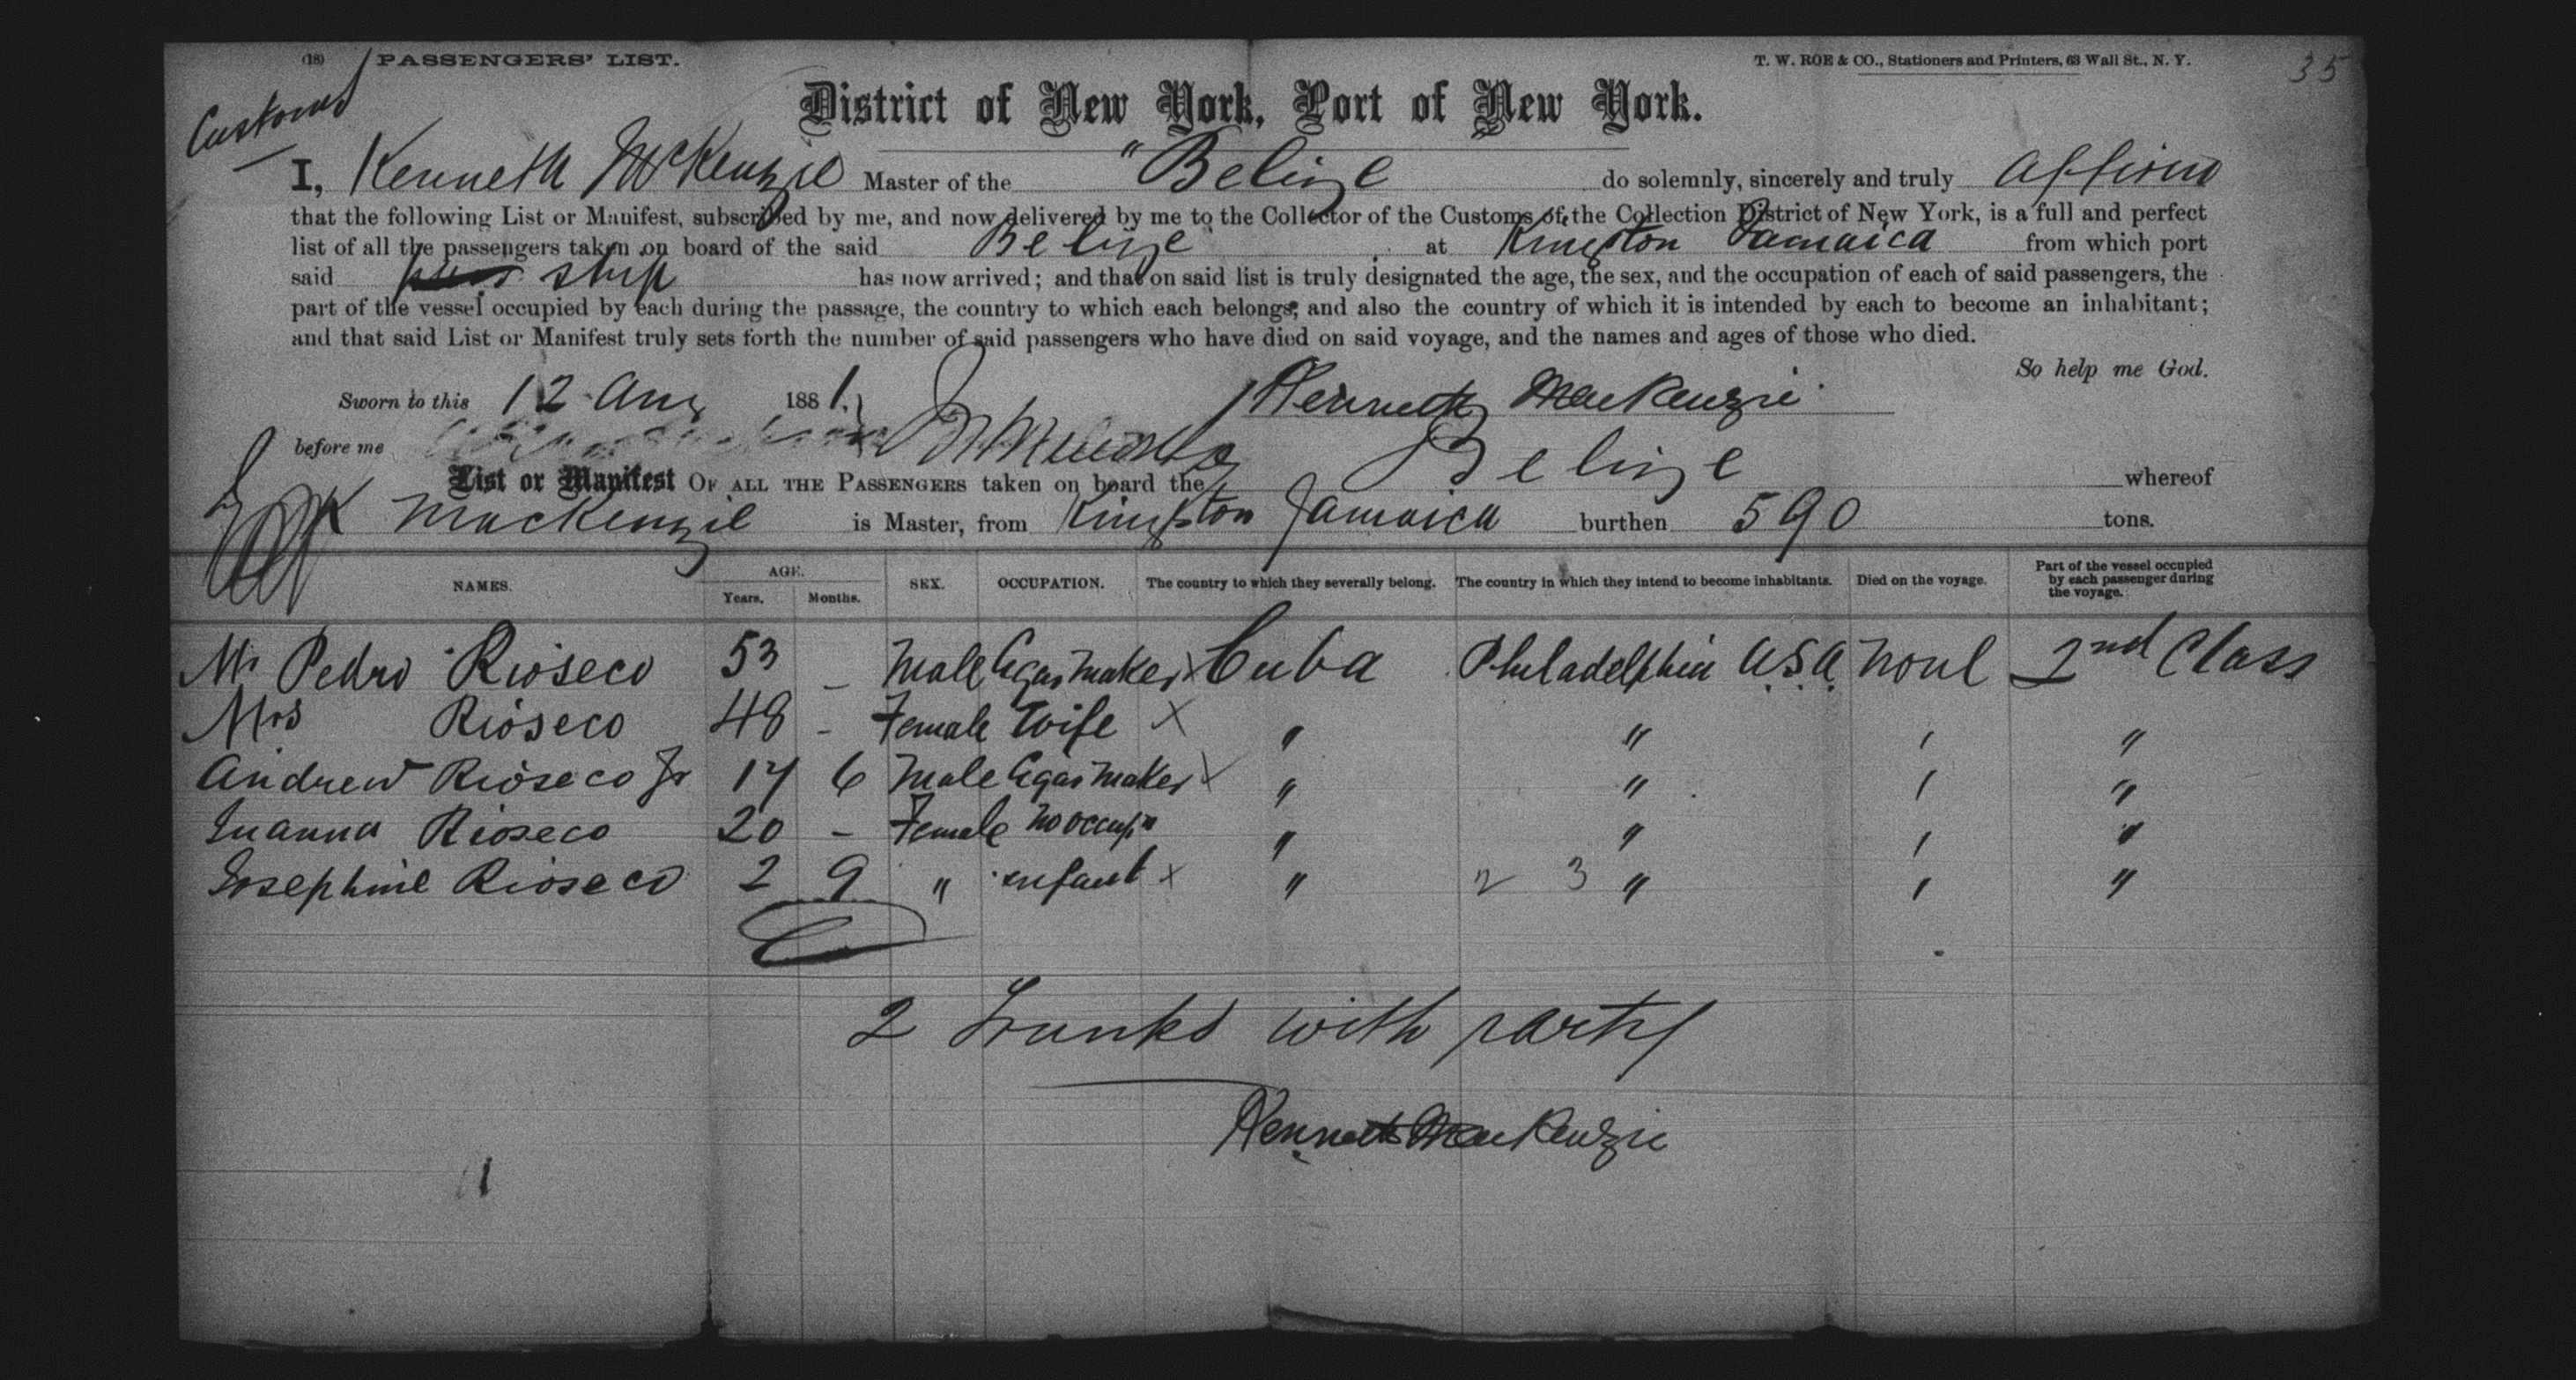 (18) PASSENGERS' LIST. T. W. ROE & CO., Stationers and Printers, 63 Wall St., N. Y. 35
Customs
District of New York, Port of New York.
I, Kenneth McKenzie Master of the "Belize do solemnly, sincerely and truly affirm
that the following List or Manifest, subscribed by me, and now delivered by me to the Collector of the Customs of the Collection District of New York, is a full and perfect
list of all the passengers taken on board of the said Belize at Kingston Jamaica from which port
said ship has now arrived; and that on said list is truly designated the age, the sex, and the occupation of each of said passengers, the
part of the vessel occupied by each during the passage, the country to which each belongs, and also the country of which it is intended by each to become an inhabitant;
and that said List or Manifest truly sets forth the number of said passengers who have died on said voyage, and the names and ages of those who died.
So help me God.
Sworn to this 12 Aug 1881. Kenneth MacKenzie
before me
List or Manifest OF ALL THE PASSENGERS taken on board the Belize whereof
K MacKenzie is Master, from Kingston Jamaica burthen 590 tons.
NAMES. AGE. Years. Months. SEX. OCCUPATION. The country to which they severally belong. The country in which they intend to become inhabitants. Died on the voyage. Part of the vessel occupied by each passenger during the voyage.
Mr Pedro Rioseco 53 - Male Cigar Maker x Cuba Philadelphia U.S.A. None 2nd Class
Mrs Rioseco 48 - Female Wife x " " ' "
Andrew Rioseco Jr 17 6 Male Cigar Maker x " " ' "
Juanna Rioseco 20 - Female No occupn " " ' "
Josephine Rioseco 2 9 " infant x " 3 " ' "
2 Trunks with party
Kenneth MacKenzie